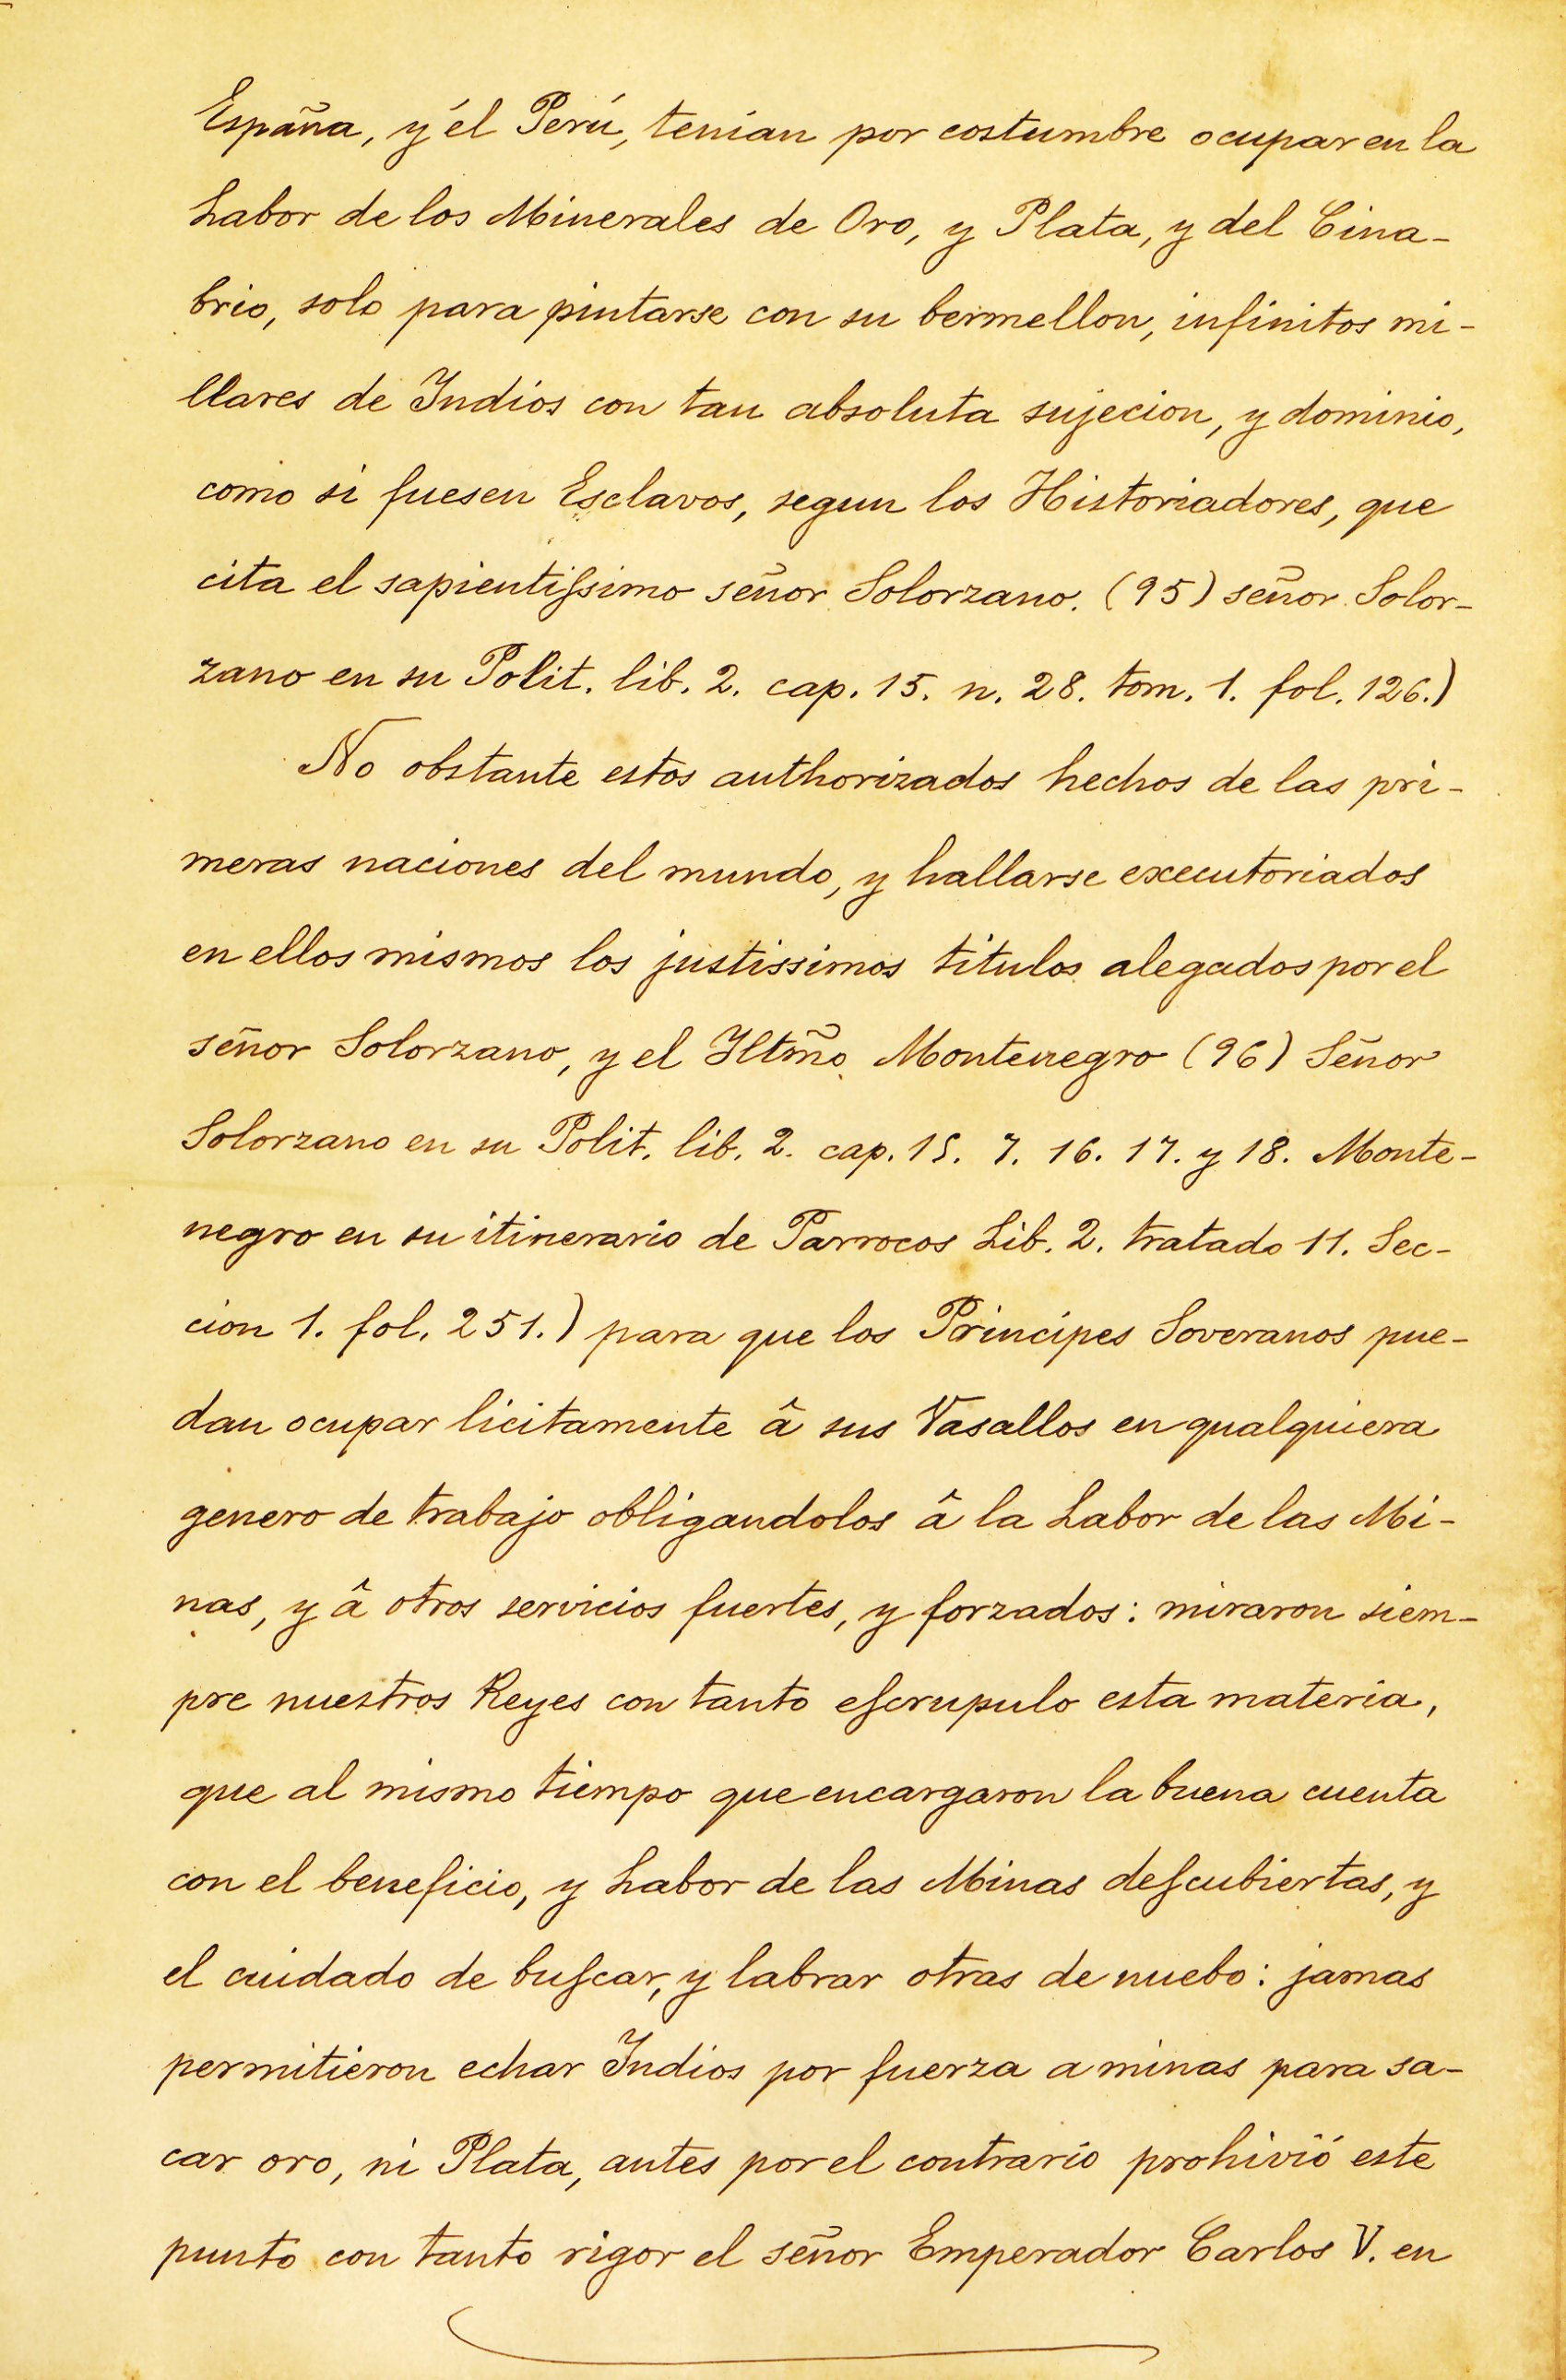 España, y él Perú, tenian por costumbre ocupar en la
Labor de los Minerales de Oro, y Plata, y del Cina-
brio, solo para pintarse con su bermellon, infinitos mi-
llares de Indios con tan absoluta sujecion, y dominio,
como si fuesen Esclavos, segun los Historiadores, que
cita el sapientiſsimo señor Solorzano. (95) señor Solor-
zano en su Polit. lib. 2. cap. 15. n. 28. tom. 1. fol. 126.)
No obstante estos authorizados hechos de las pri-
meras naciones del mundo, y hallarse executoriados
en ellos mismos los justissimos titulos alegados por el
señor Solorzano, y el Iltm̃o Montenegro (96) Señor
Solorzano en su Polit. lib. 2. cap. 15. 7. 16. 17. y 18. Monte-
negro en su itinerario de Parrocos Lib. 2. tratado 11. Sec-
cion 1. fol. 251.) para que los Principes Soveranos pue-
dan ocupar licitamente â sus Vasallos en qualquiera
genero de trabajo obligandolos â la Labor de las Mi-
nas, y â otros servicios fuertes, y forzados: miraron siem-
pre nuestros Reyes con tanto eſcrupulo esta materia,
que al mismo tiempo que encargaron la buena cuenta
con el beneficio, y Labor de las Minas deſcubiertas, y
el cuidado de buſcar, y labrar otras de nuebo: jamas
permitieron echar Indios por fuerza a minas para sa-
car oro, ni Plata, antes por el contrario prohivió este
punto con tanto rigor el señor Emperador Carlos V. en